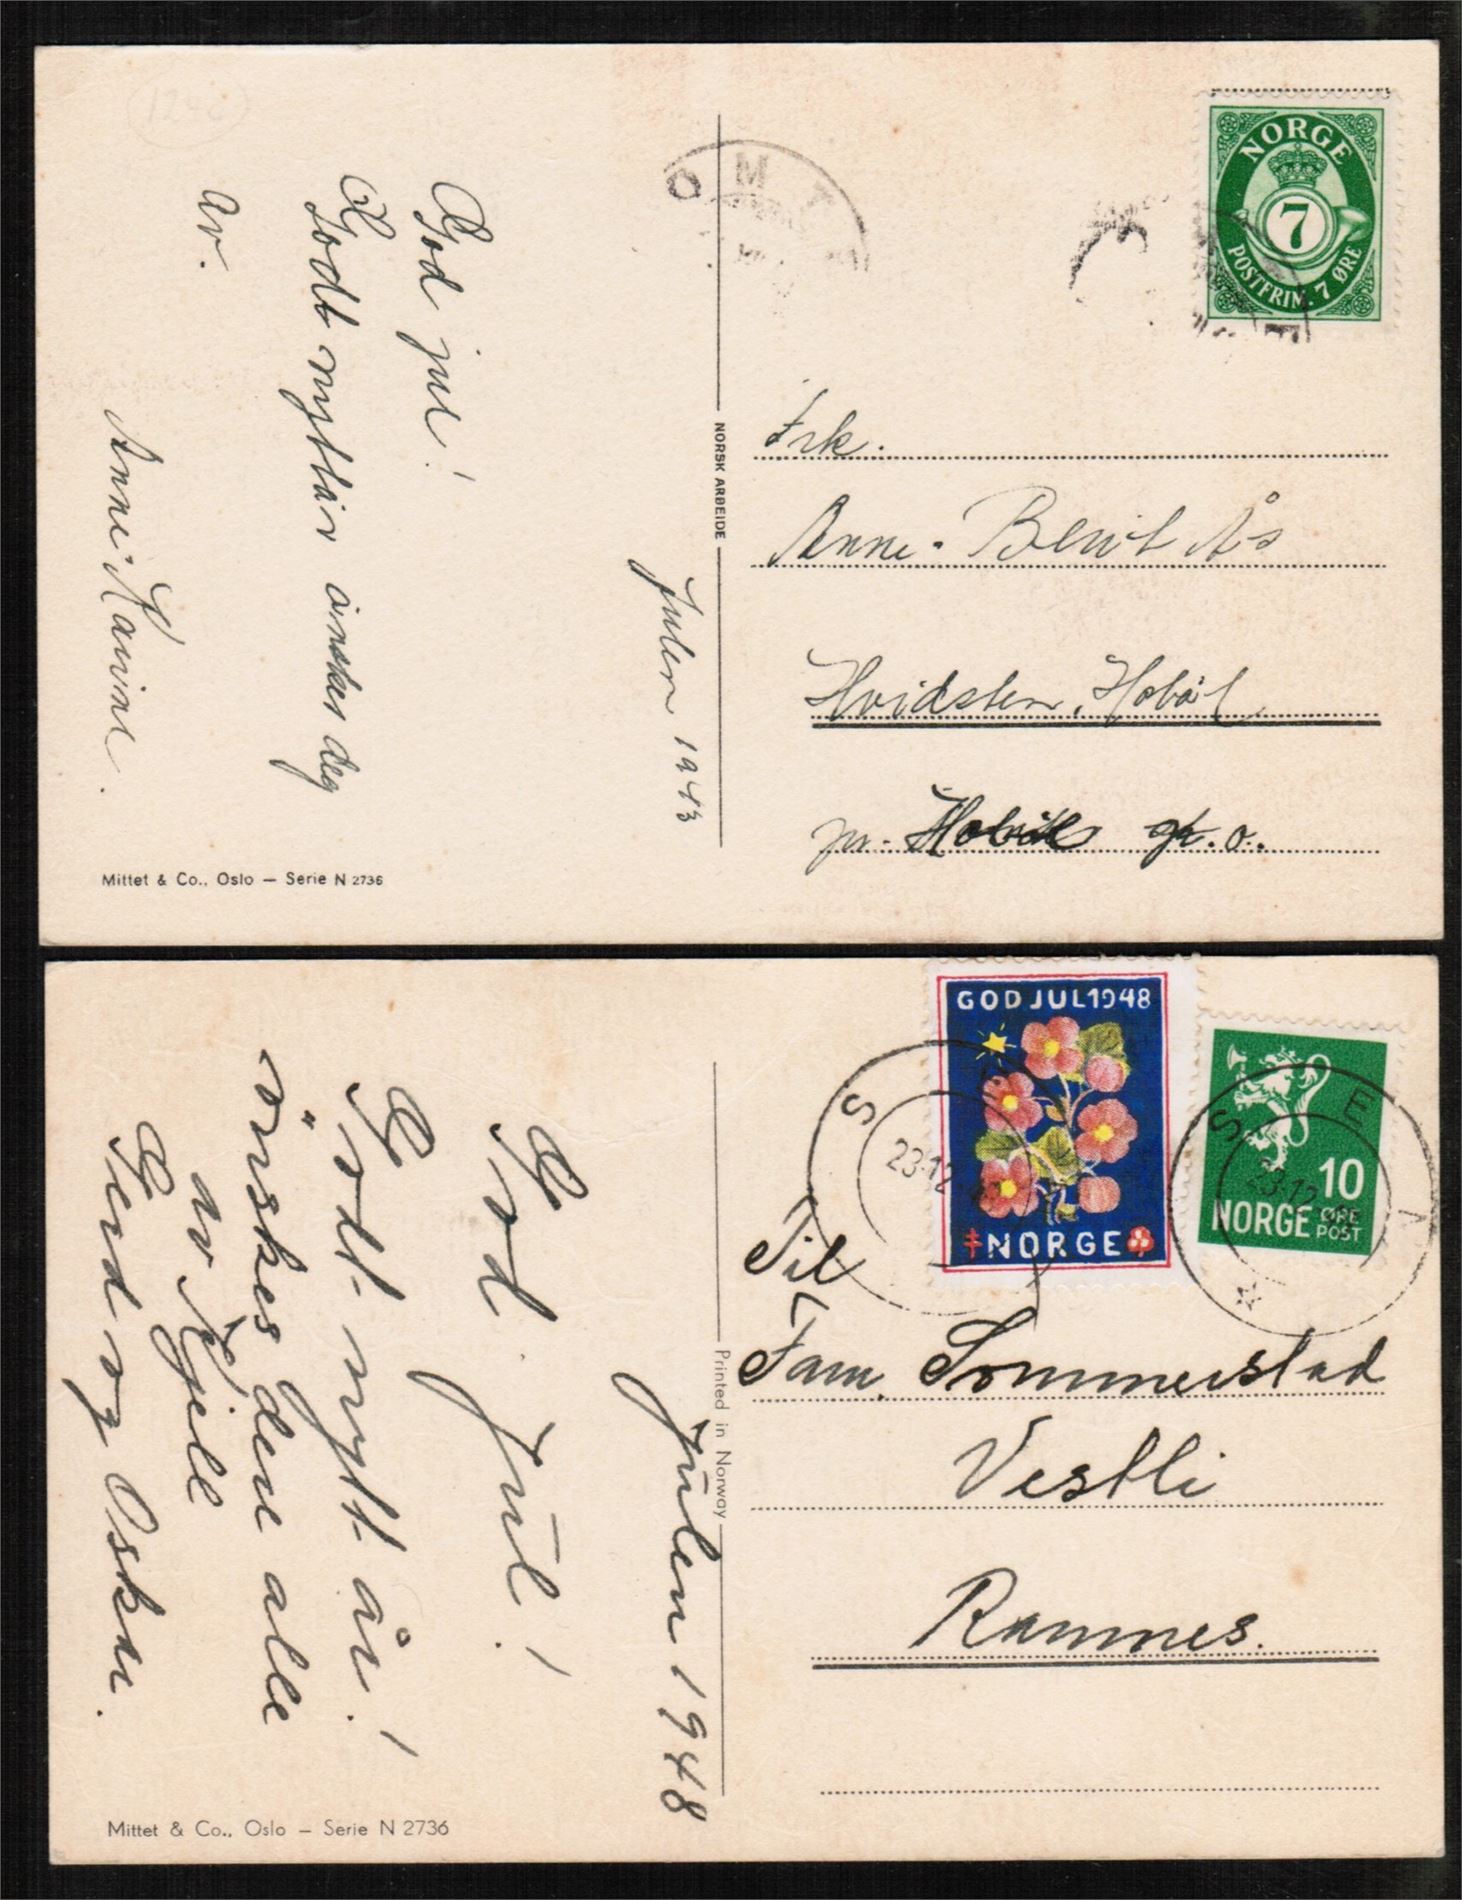 God jul!
Godt nyttår ønsker deg
av.
Anne-Karine.
Julen 1943
Mittet & Co., Oslo — Serie N 2736
NORSK ARBEIDE
OMT
NORGE
7
POSTFRIM. 7 ØRE
Frk.
Anne-Berit Ås
Hvidsten, Hobøl
pr. Hobøl st. o.
God Jul!
Godt nytt år!
önskes dere alle
av Kjell
Gerd og Oskar.
Julen 1948
Mittet & Co., Oslo — Serie N 2736
Printed in Norway
GOD JUL 1948
NORGE
S
23-12
10
NORGE ØRE
POST
SEN
23-12
Til
Fam. Sommerstad
Vestli
Ramnes.